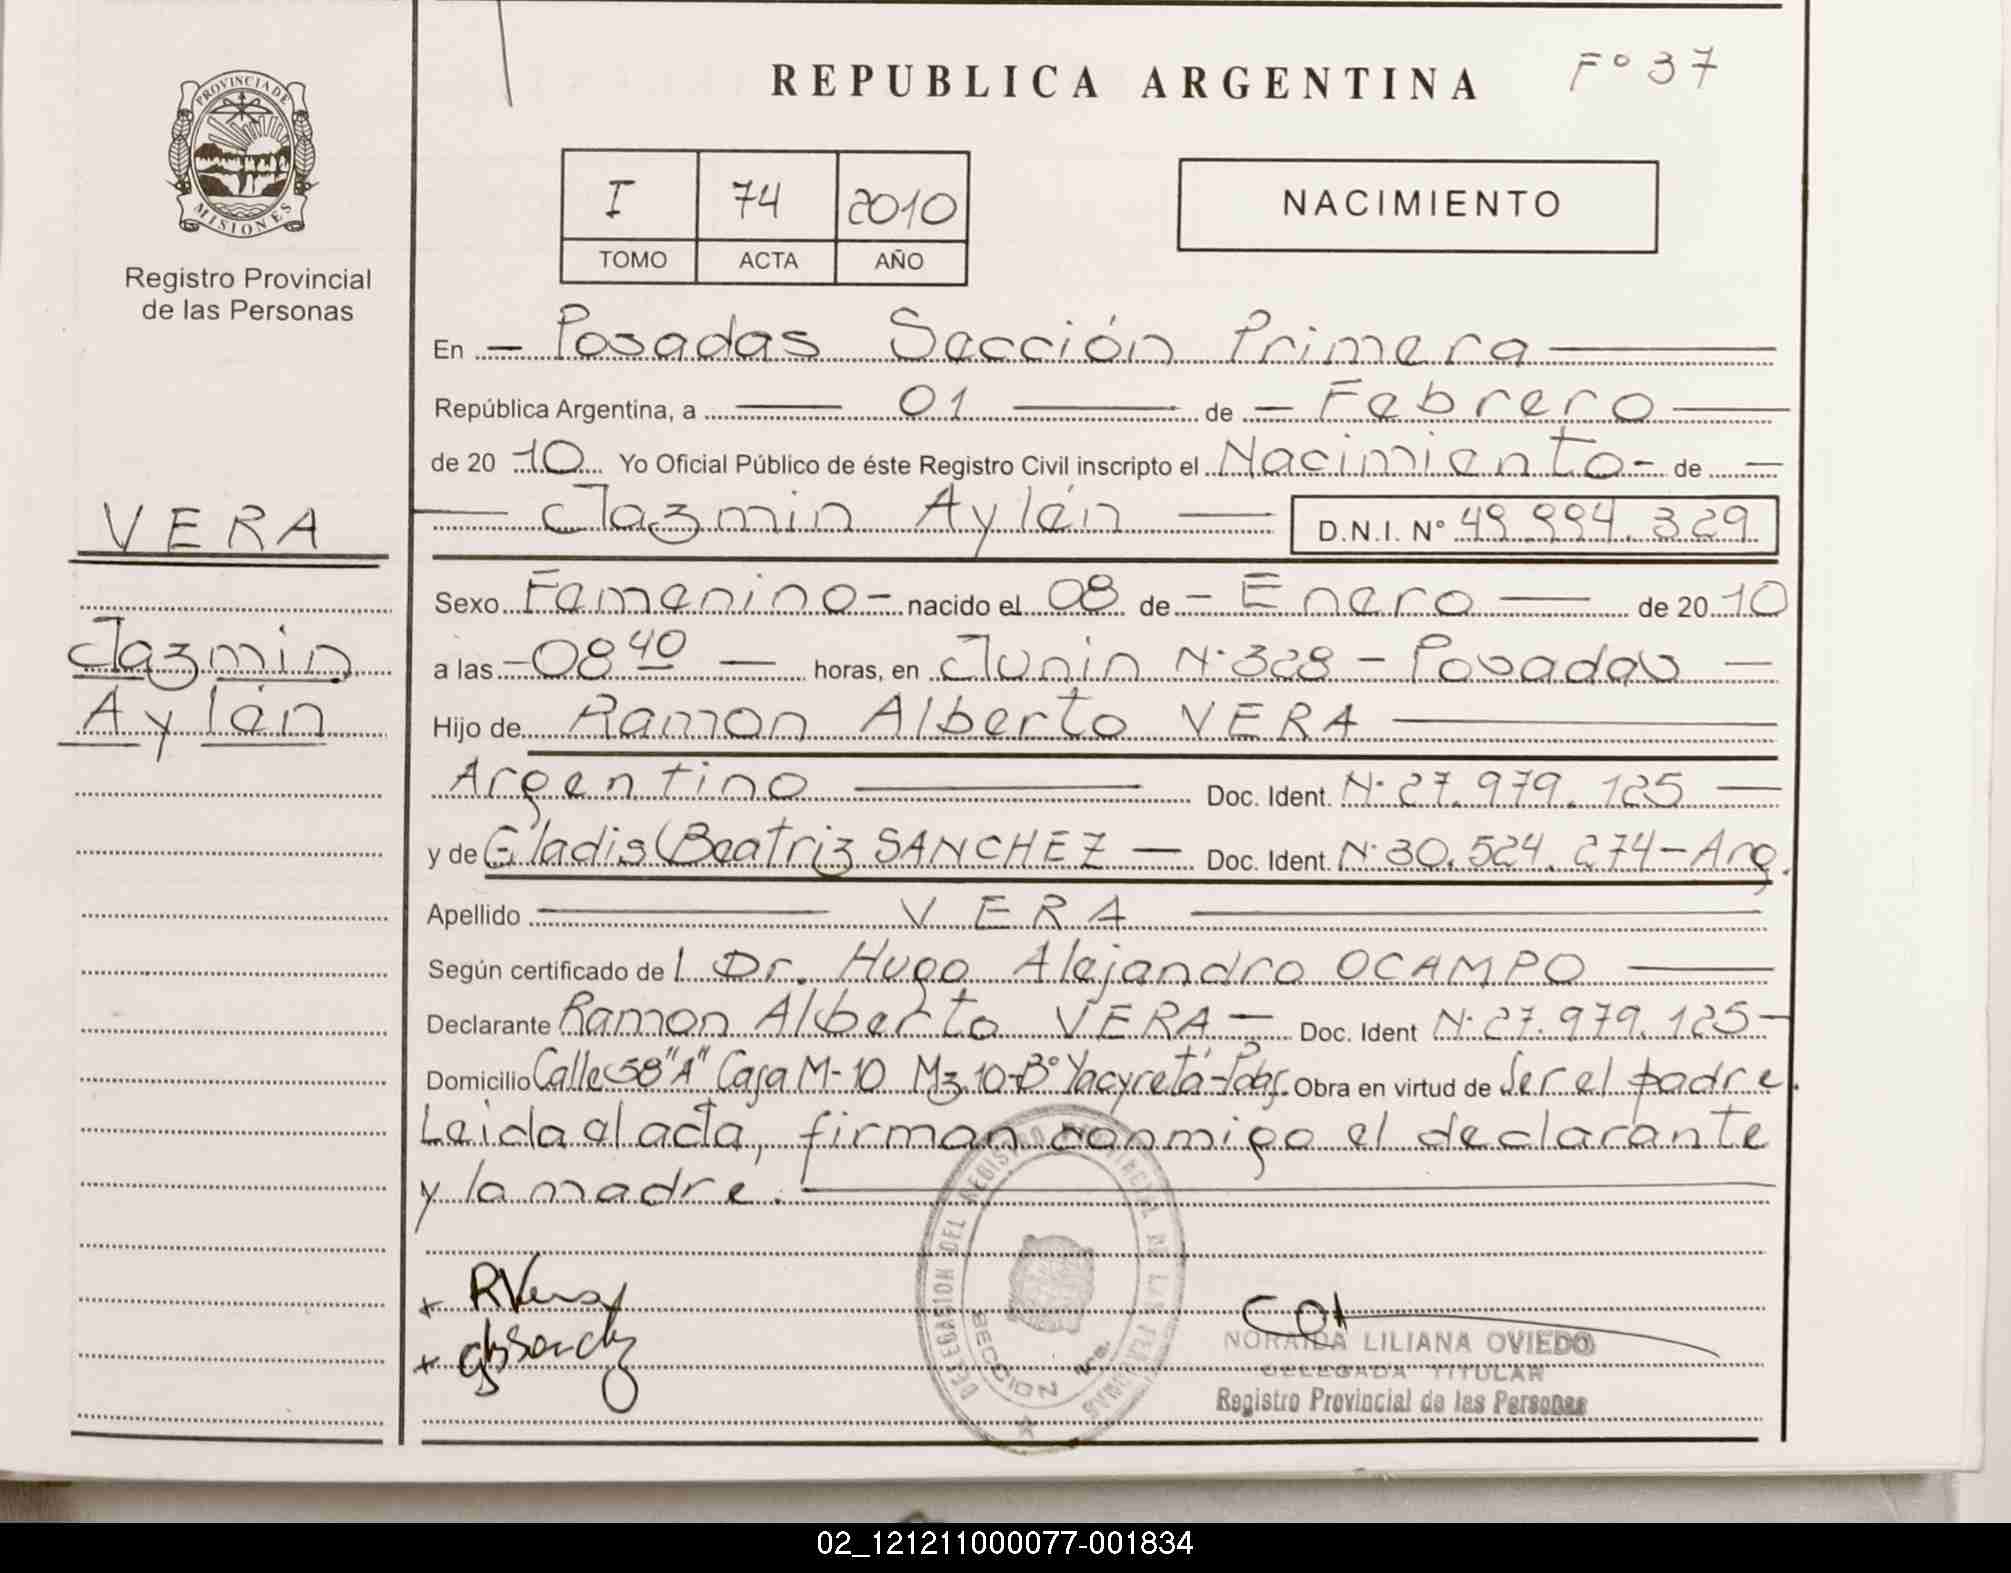 F° 37
REPUBLICA ARGENTINA
PROVINCIA DE
MISIONES
Registro Provincial
de las Personas
I 74 2010
TOMO ACTA AÑO
NACIMIENTO
En - Posadas Sección Primera
República Argentina, a 01 de - Febrero
de 20 10 Yo Oficial Público de éste Registro Civil inscripto el Nacimiento - de -
Jazmin Aylén D.N.I. N° 49.994.329
VERA
Jazmin
Aylén
Sexo Femenino - nacido el 08 de - Enero - de 20 10
a las - 08 40 - horas, en Junin N° 328 - Posadas -
Hijo de Ramon Alberto VERA
Argentino Doc. Ident. N° 27.979.125
y de Gladis Beatriz SANCHEZ - Doc. Ident. N° 30.524.274 - Arg.
Apellido VERA
Según certificado de l Dr. Hugo Alejandro OCAMPO
Declarante Ramon Alberto VERA - Doc. Ident N° 27.979.125 -
Domicilio Calle 58 "A" Casa M-10 Mz.10-B° Yacyretá-Pdas. Obra en virtud de Ser el padre.
Leida al acta, firman conmigo el declarante
y la madre.
DELEGACION DEL REGISTRO PROVINCIAL DE LAS PERSONAS
SECCION 1ra.
+ RVera
+
NORAIDA LILIANA OVIEDO
DELEGADA TITULAR
Registro Provincial de las Personas
02_121211000077-001834